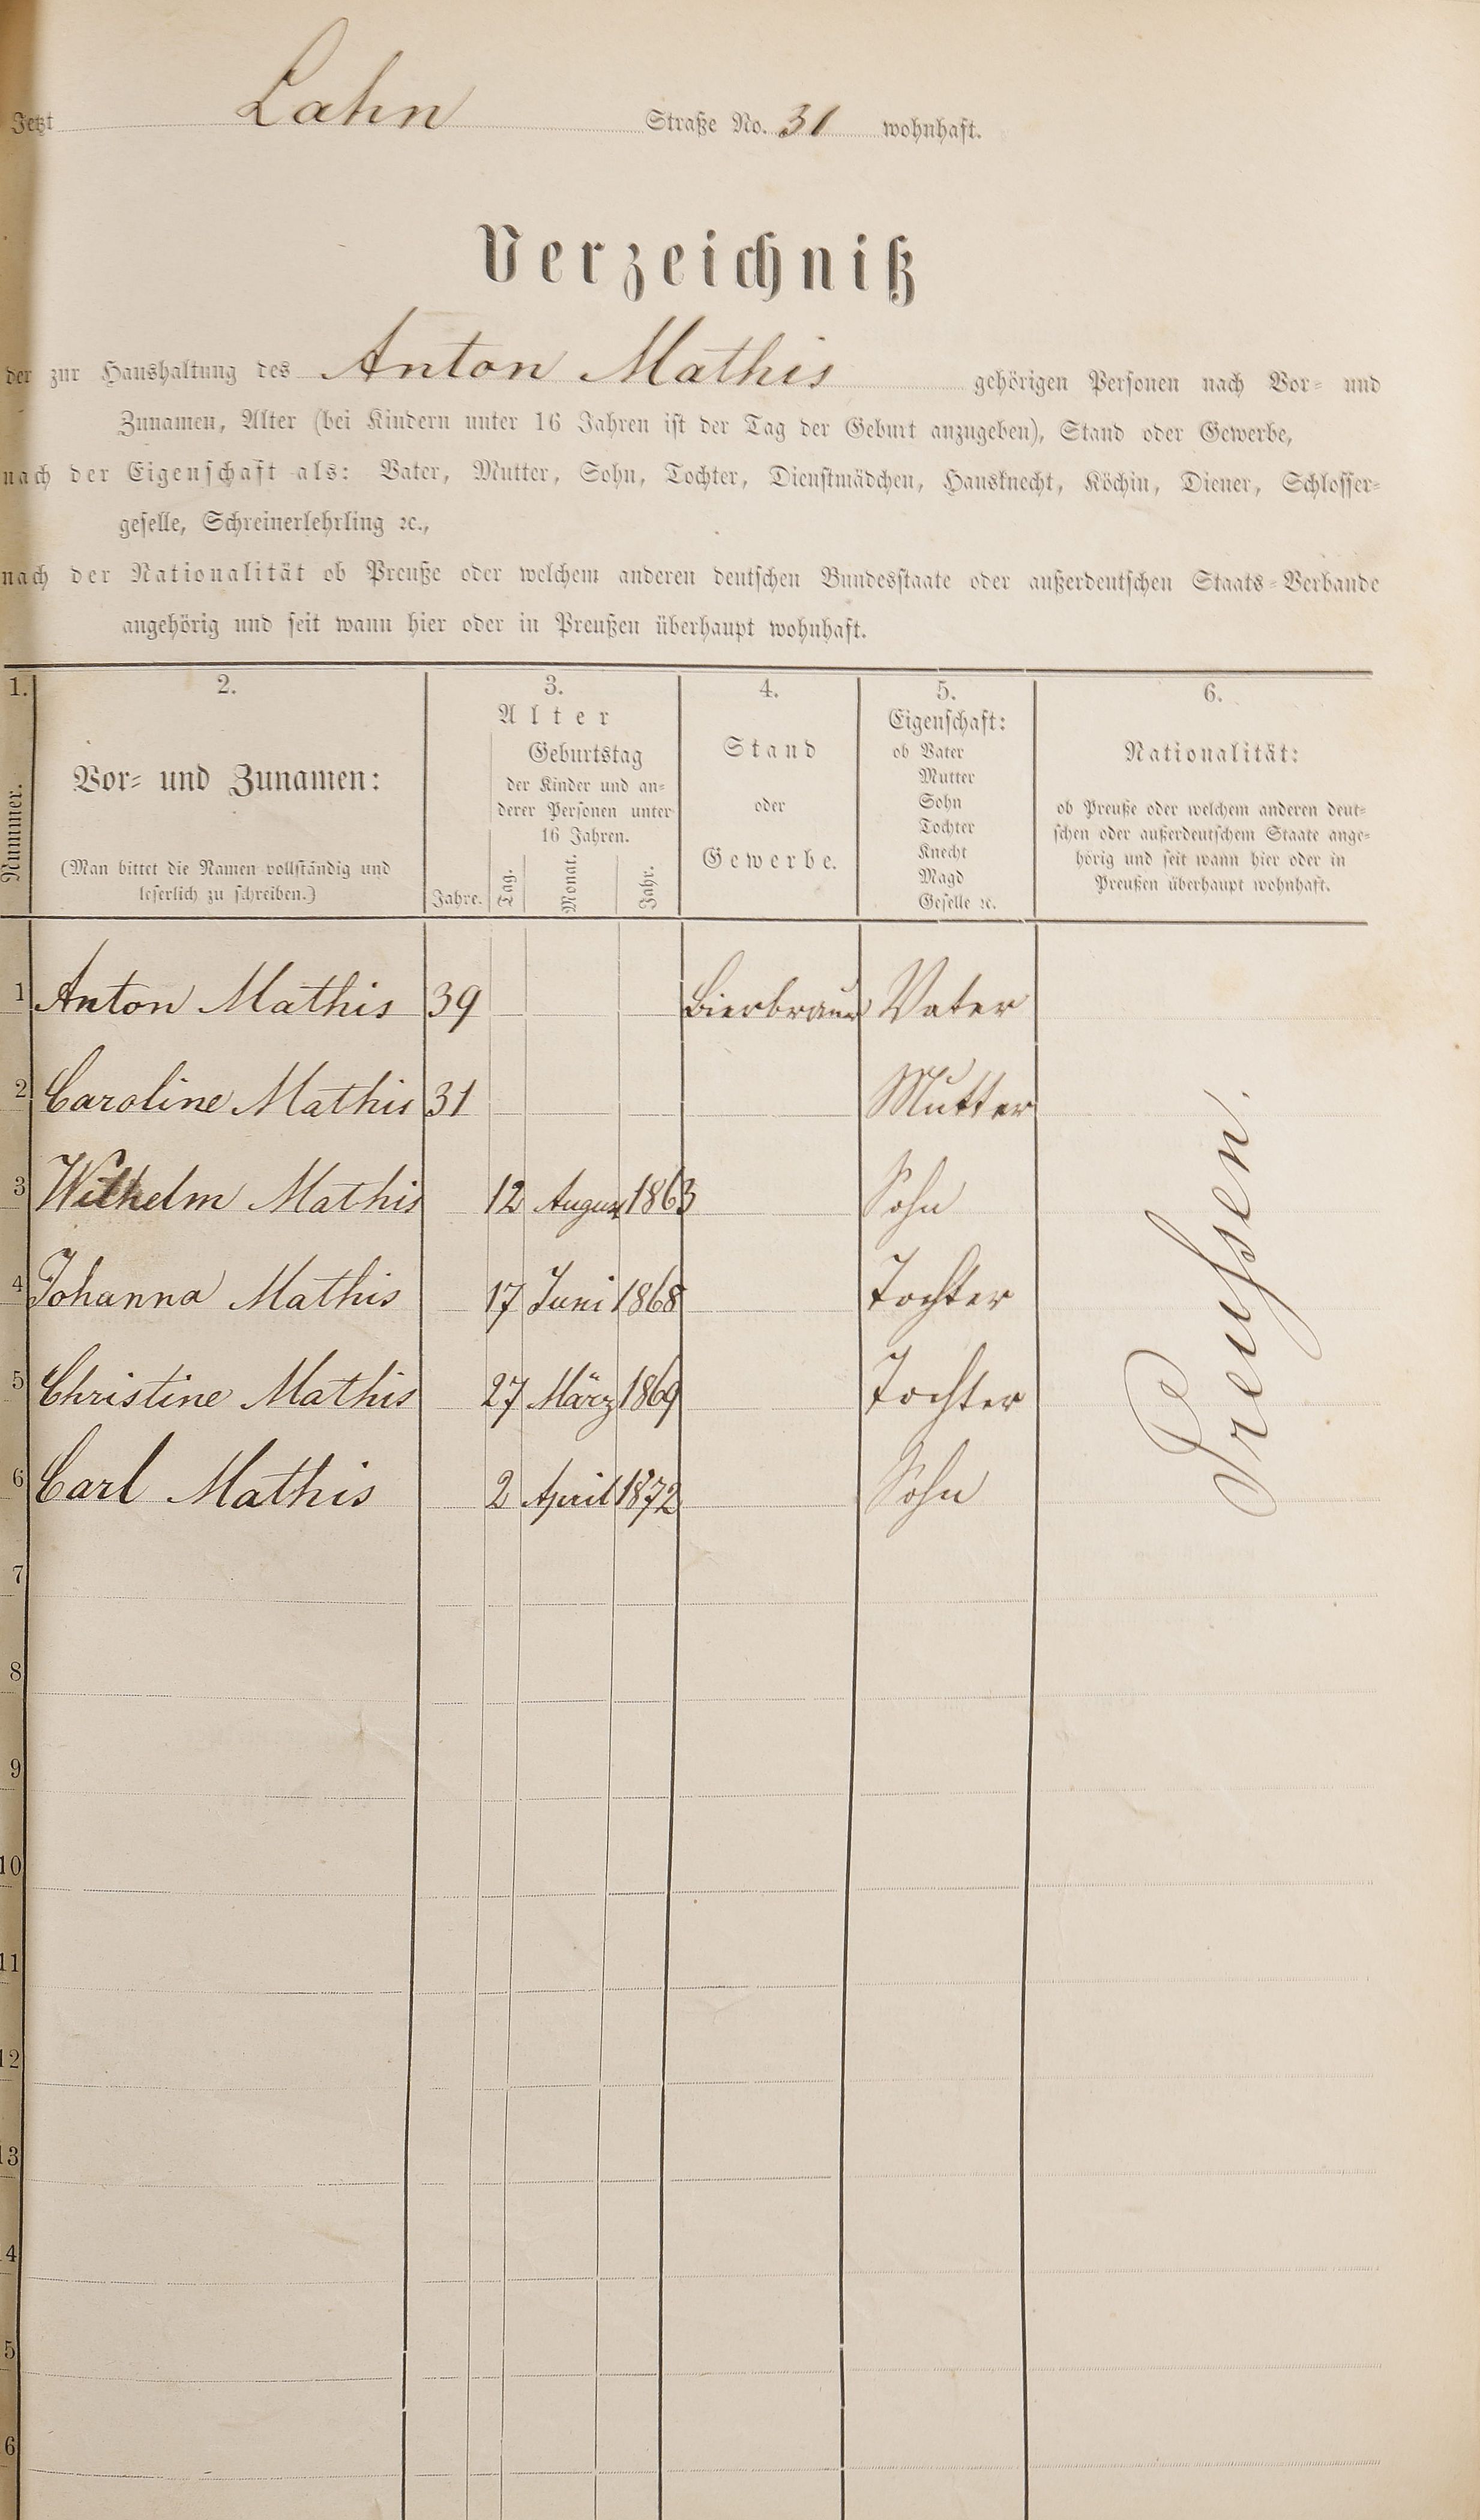 Jetzt Lahn Straße No. 31 wohnhaft.
Verzeichniß
der zur Haushaltung des Anton Mathis gehörigen Personen nach Vor- und
Zunamen, Alter (bei Kindern unter 16 Jahren ist der Tag der Geburt anzugeben), Stand oder Gewerbe,
nach der Eigenschaft als: Vater, Mutter, Sohn, Tochter, Dienstmädchen, Hausknecht, Köchin, Diener, Schlosser-
geselle, Schreinerlehrling ꝛc.,
nach der Nationalität ob Preuße oder welchem anderen deutschen Bundesstaate oder außerdeutschen Staats-Verbande
angehörig und seit wann hier oder in Preußen überhaupt wohnhaft.
1.
Nummer.
2.
Vor- und Zunamen:
(Man bittet die Namen vollständig und
leserlich zu schreiben.)
3.
Alter
Jahre.
Geburtstag
der Kinder und an-
derer Personen unter
16 Jahren.
Tag. Monat. Jahr.
4.
Stand
oder
Gewerbe.
5.
Eigenschaft:
ob Vater
Mutter
Sohn
Tochter
Knecht
Magd
Geselle ꝛc.
6.
Nationalität:
ob Preuße oder welchem anderen deut-
schen oder außerdeutschem Staate ange-
hörig und seit wann hier oder in
Preußen überhaupt wohnhaft.
1 Anton Mathis 39 Bierbrauer Vater
2 Caroline Mathis 31 Mutter
3 Wilhelm Mathis 12 August 1863 Sohn
4 Johanna Mathis 17 Juni 1868 Tochter
5 Christine Mathis 27 März 1869 Tochter
6 Carl Mathis 2 April 1872 Sohn
Preußen.
7
8
9
10
11
12
13
4
5
6